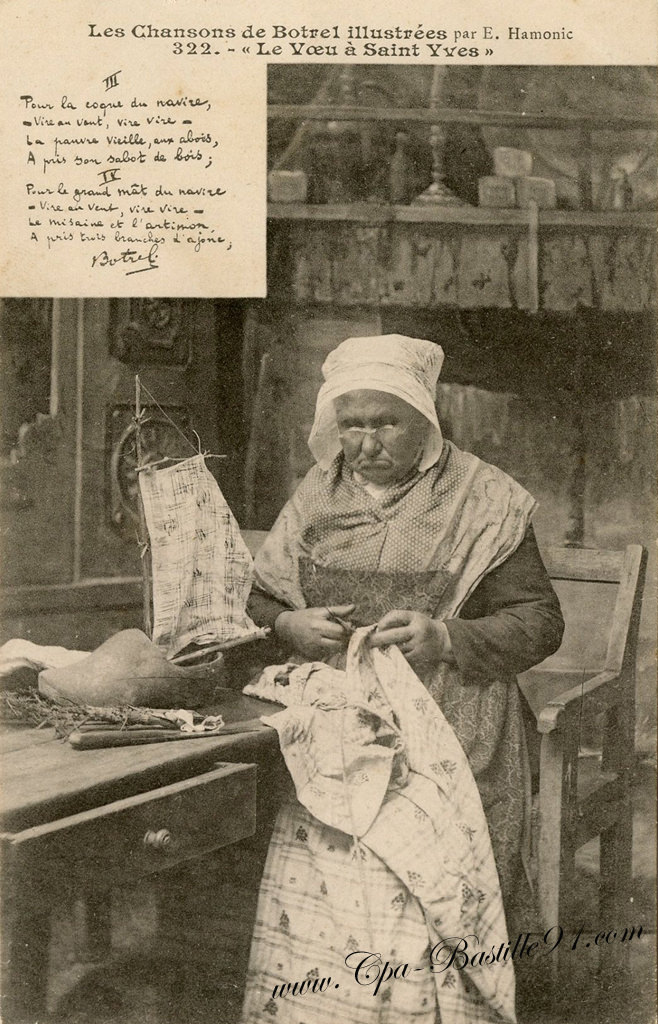 Les Chansons de Botrel illustrées par E. Hamonic
322. - « Le Vœu à Saint Yves »
III
Pour la coque du navire,
- Vire au vent, vire vire -
La pauvre vieille, aux abois,
A pris son sabot de bois ;
IV
Pour le grand mât du navire
- Vire au vent, vire vire -
Le misaine et l'artimon,
A pris trois branches d'ajonc,
Botrel
www.Cpa-Bastille91.com